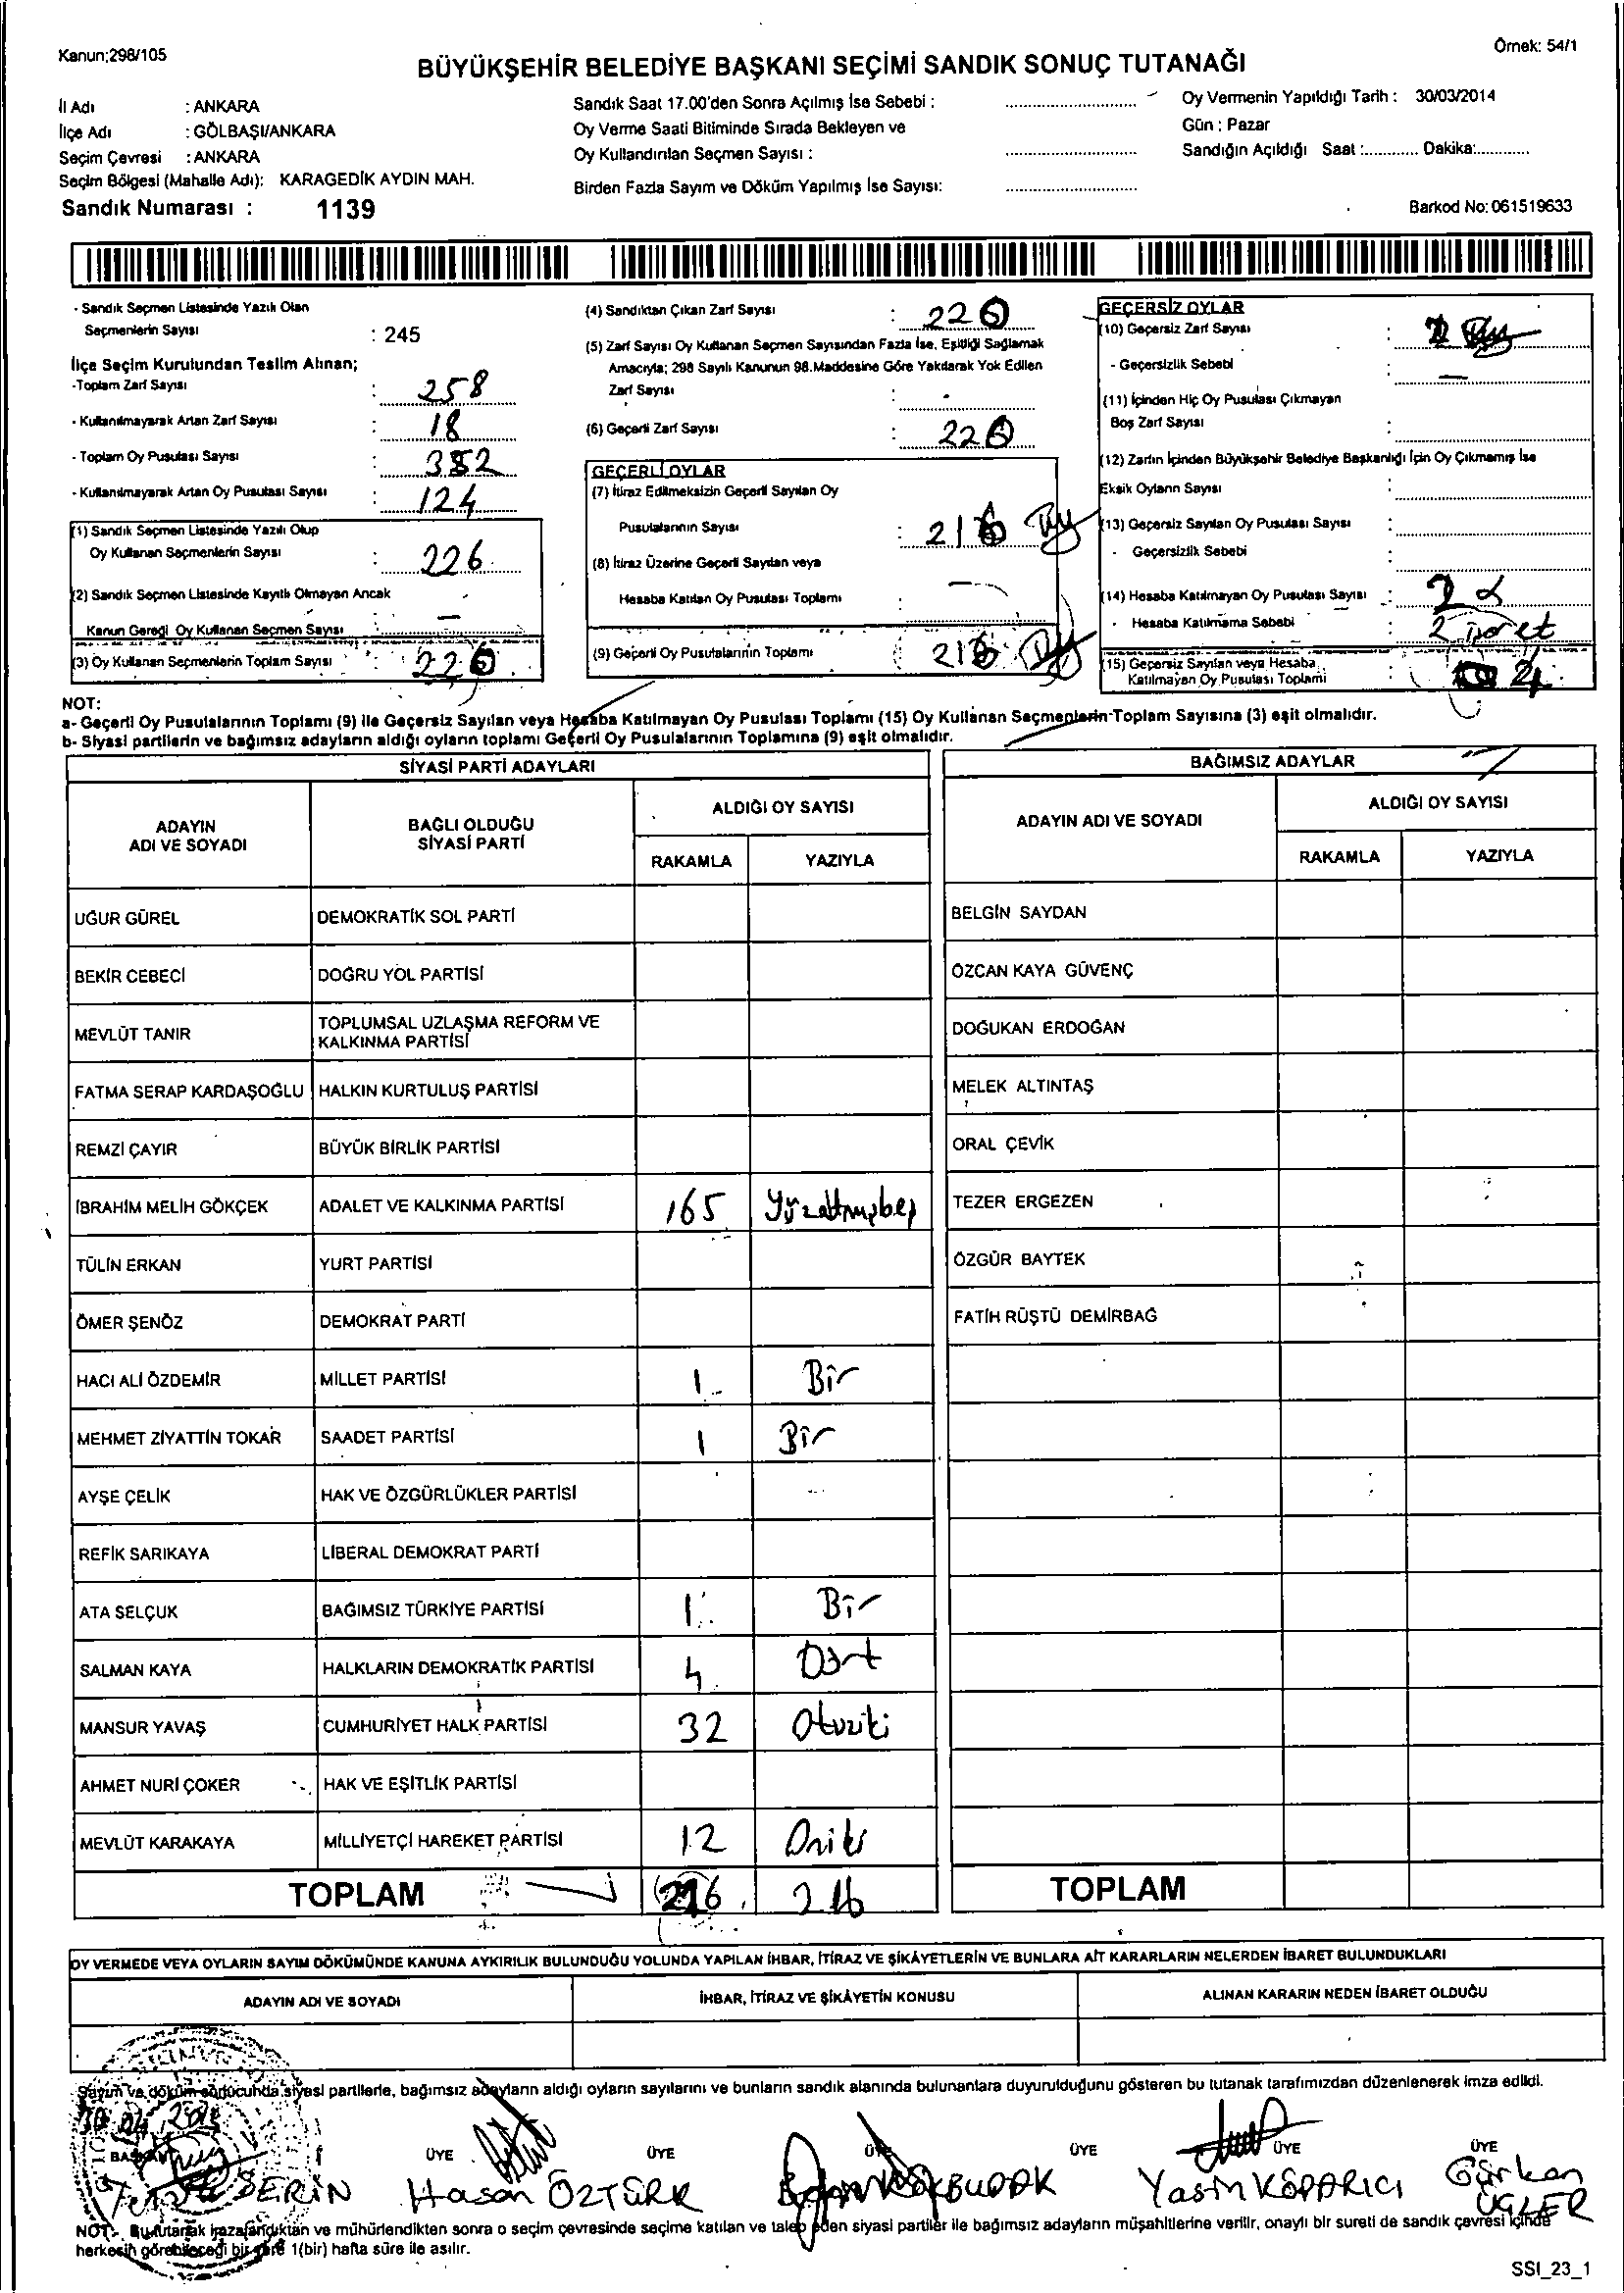 Kanun;298/105
Örnek: 54/1
BÜYÜKŞEHİR BELEDİYE BAŞKANI SEÇİMİ SANDIK SONUÇ TUTANAĞI
İl Adı : ANKARA
İlçe Adı : GÖLBAŞI/ANKARA
Seçim Çevresi : ANKARA
Seçim Bölgesi (Mahalle Adı): KARAGEDİK AYDIN MAH.
Sandık Numarası : 1139
Sandık Saat 17.00'den Sonra Açılmış İse Sebebi :
Oy Verme Saati Bitiminde Sırada Bekleyen ve
Oy Kullandırılan Seçmen Sayısı :
Birden Fazla Sayım ve Döküm Yapılmış İse Sayısı:
Oy Vermenin Yapıldığı Tarih : 30/03/2014
Gün : Pazar
Sandığın Açıldığı Saat :............ Dakika:............
Barkod No: 061519633
- Sandık Seçmen Listesinde Yazılı Olan
Seçmenlerin Sayısı : 245
İlçe Seçim Kurulundan Teslim Alınan;
-Toplam Zarf Sayısı : 258
- Kullanılmayarak Artan Zarf Sayısı : 18
- Toplam Oy Pusulası Sayısı : 352
- Kullanılmayarak Artan Oy Pusulası Sayısı : 124
(1) Sandık Seçmen Listesinde Yazılı Olup
Oy Kullanan Seçmenlerin Sayısı : 226
(2) Sandık Seçmen Listesinde Kayıtlı Olmayan Ancak
Kanun Gereği Oy Kullanan Seçmen Sayısı : —
(3) Oy Kullanan Seçmenlerin Toplam Sayısı : 226
(4) Sandıktan Çıkan Zarf Sayısı : 226
(5) Zarf Sayısı Oy Kullanan Seçmen Sayısından Fazla İse, Eşitliği Sağlamak
Amacıyla; 298 Sayılı Kanunun 98.Maddesine Göre Yakılarak Yok Edilen
Zarf Sayısı :
(6) Geçerli Zarf Sayısı : 226
GEÇERLİ OYLAR
(7) İtiraz Edilmeksizin Geçerli Sayılan Oy
Pusulalarının Sayısı : 216
(8) İtiraz Üzerine Geçerli Sayılan veya
Hesaba Katılan Oy Pusulası Toplamı : —
(9) Geçerli Oy Pusulalarının Toplamı : 216
GEÇERSİZ OYLAR
(10) Geçersiz Zarf Sayısı :
- Geçersizlik Sebebi : —
(11) İçinden Hiç Oy Pusulası Çıkmayan
Boş Zarf Sayısı :
(12) Zarfın İçinden Büyükşehir Belediye Başkanlığı İçin Oy Çıkmamış İse
Eksik Oyların Sayısı :
(13) Geçersiz Sayılan Oy Pusulası Sayısı :
- Geçersizlik Sebebi :
(14) Hesaba Katılmayan Oy Pusulası Sayısı : 2
- Hesaba Katılmama Sebebi : 2 işaret
(15) Geçersiz Sayılan veya Hesaba
Katılmayan Oy Pusulası Toplamı :
NOT:
a- Geçerli Oy Pusulalarının Toplamı (9) ile Geçersiz Sayılan veya Hesaba Katılmayan Oy Pusulası Toplamı (15) Oy Kullanan Seçmenlerin Toplam Sayısına (3) eşit olmalıdır.
b- Siyasi partilerin ve bağımsız adayların aldığı oyların toplamı Geçerli Oy Pusulalarının Toplamına (9) eşit olmalıdır.
SİYASİ PARTİ ADAYLARI
ADAYIN ADI VE SOYADI BAĞLI OLDUĞU SİYASİ PARTİ ALDIĞI OY SAYISI
RAKAMLA YAZIYLA
UĞUR GÜREL DEMOKRATİK SOL PARTİ
BEKİR CEBECİ DOĞRU YOL PARTİSİ
MEVLÜT TANIR TOPLUMSAL UZLAŞMA REFORM VE KALKINMA PARTİSİ
FATMA SERAP KARDAŞOĞLU HALKIN KURTULUŞ PARTİSİ
REMZİ ÇAYIR BÜYÜK BİRLİK PARTİSİ
İBRAHİM MELİH GÖKÇEK ADALET VE KALKINMA PARTİSİ 165 Yüzaltmışbeş
TÜLİN ERKAN YURT PARTİSİ
ÖMER ŞENÖZ DEMOKRAT PARTİ
HACI ALİ ÖZDEMİR MİLLET PARTİSİ 1 Bir
MEHMET ZİYATTİN TOKAR SAADET PARTİSİ 1 Bir
AYŞE ÇELİK HAK VE ÖZGÜRLÜKLER PARTİSİ
REFİK SARIKAYA LİBERAL DEMOKRAT PARTİ
ATA SELÇUK BAĞIMSIZ TÜRKİYE PARTİSİ 1 Bir
SALMAN KAYA HALKLARIN DEMOKRATİK PARTİSİ 4 Dört
MANSUR YAVAŞ CUMHURİYET HALK PARTİSİ 32 Otuziki
AHMET NURİ ÇOKER HAK VE EŞİTLİK PARTİSİ
MEVLÜT KARAKAYA MİLLİYETÇİ HAREKET PARTİSİ 12 Oniki
TOPLAM 216 216
BAĞIMSIZ ADAYLAR
ADAYIN ADI VE SOYADI ALDIĞI OY SAYISI
RAKAMLA YAZIYLA
BELGİN SAYDAN
ÖZCAN KAYA GÜVENÇ
DOĞUKAN ERDOĞAN
MELEK ALTINTAŞ
ORAL ÇEVİK
TEZER ERGEZEN
ÖZGÜR BAYTEK
FATİH RÜŞTÜ DEMİRBAĞ
TOPLAM
OY VERMEDE VEYA OYLARIN SAYIM DÖKÜMÜNDE KANUNA AYKIRILIK BULUNDUĞU YOLUNDA YAPILAN İHBAR, İTİRAZ VE ŞİKÂYETLERİN VE BUNLARA AİT KARARLARIN NELERDEN İBARET BULUNDUKLARI
ADAYIN ADI VE SOYADI İHBAR, İTİRAZ VE ŞİKÂYETİN KONUSU ALINAN KARARIN NEDEN İBARET OLDUĞU
Sayım ve döküm sonucunda siyasi partilerle, bağımsız adayların aldığı oyların sayılarını ve bunların sandık alanında bulunanlara duyurulduğunu gösteren bu tutanak tarafımızdan düzenlenerek imza edildi.
BAŞKAN ÜYE ÜYE ÜYE ÜYE ÜYE ÜYE
DERİN Hasan ÖZTÜRK AKBUDAK Yasin KÖPARICI Gürkan ÜGLER
NOT:- Bu tutanak imzalandıktan ve mühürlendikten sonra o seçim çevresinde seçime katılan ve talep eden siyasi partiler ile bağımsız adayların müşahitlerine verilir, onaylı bir sureti de sandık çevresi içinde
herkesin görebileceği bir yere 1(bir) hafta süre ile asılır.
SSI_23_1